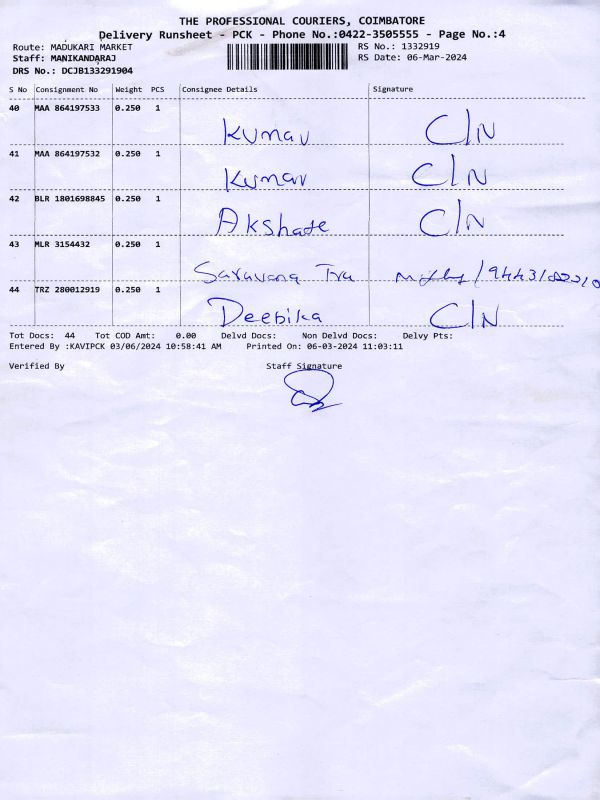 THE PROFESSIONAL COURIERS, COIMBATORE
Delivery Runsheet - PCK - Phone No.:0422-3505555 - Page No.:4
Route: MADUKARI MARKET RS No.: 1332919
Staff: MANIKANDARAJ RS Date: 06-Mar-2024
DRS No.: DCJB133291904
S No Consignment No Weight PCS Consignee Details Signature
40 MAA 864197533 0.250 1
Kumar C/N
41 MAA 864197532 0.250 1
Kumar C/N
42 BLR 1801698845 0.250 1
Akshate C/N
43 MLR 3154432 0.250 1
Saravana Tra
44 TRZ 280012919 0.250 1
Deebika C/N
Tot Docs: 44 Tot COD Amt: 0.00 Delvd Docs: Non Delvd Docs: Delvy Pts:
Entered By :KAVIPCK 03/06/2024 10:58:41 AM Printed On: 06-03-2024 11:03:11
Verified By Staff Signature